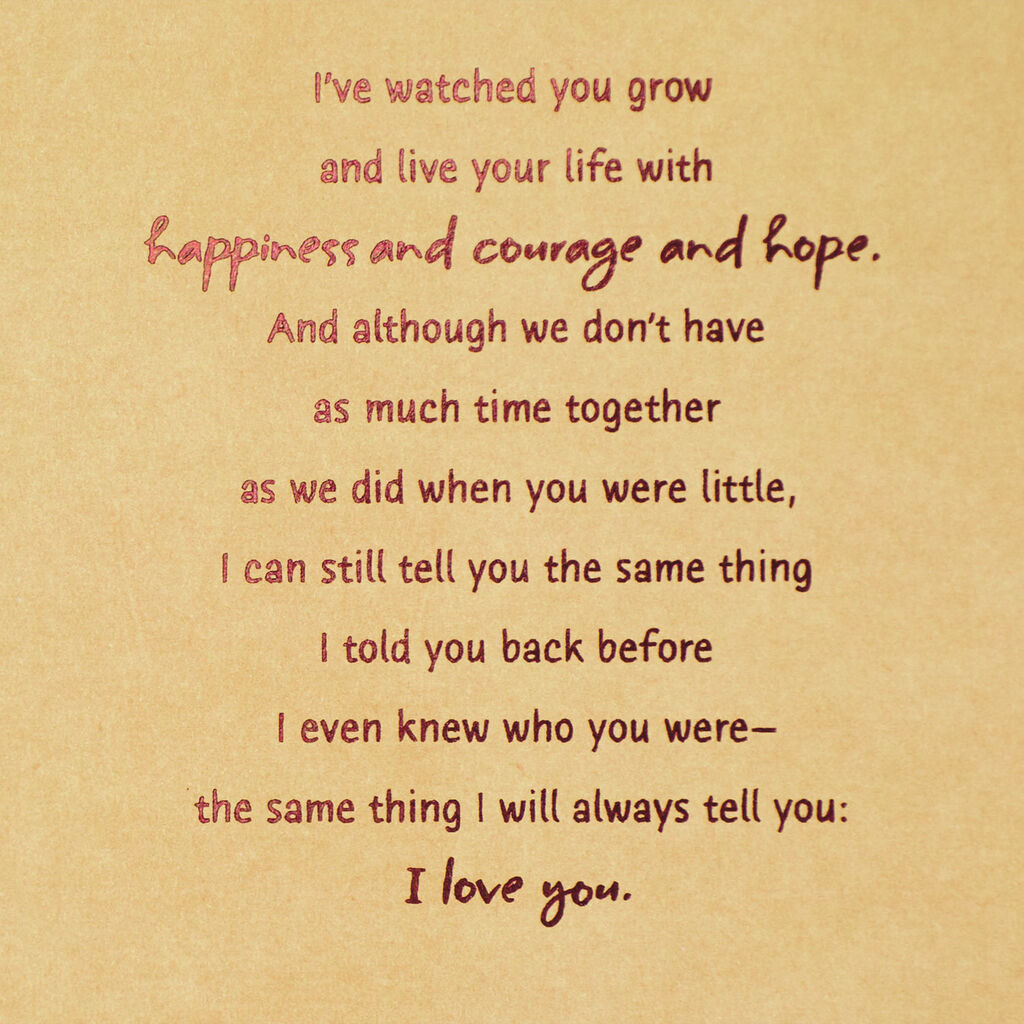 I've watched you grow
and live your life with
happiness and courage and hope.
And although we don't have
as much time together
as we did when you were little,
I can still tell you the same thing
I told you back before
I even knew who you were—
the same thing I will always tell you:
I love you.